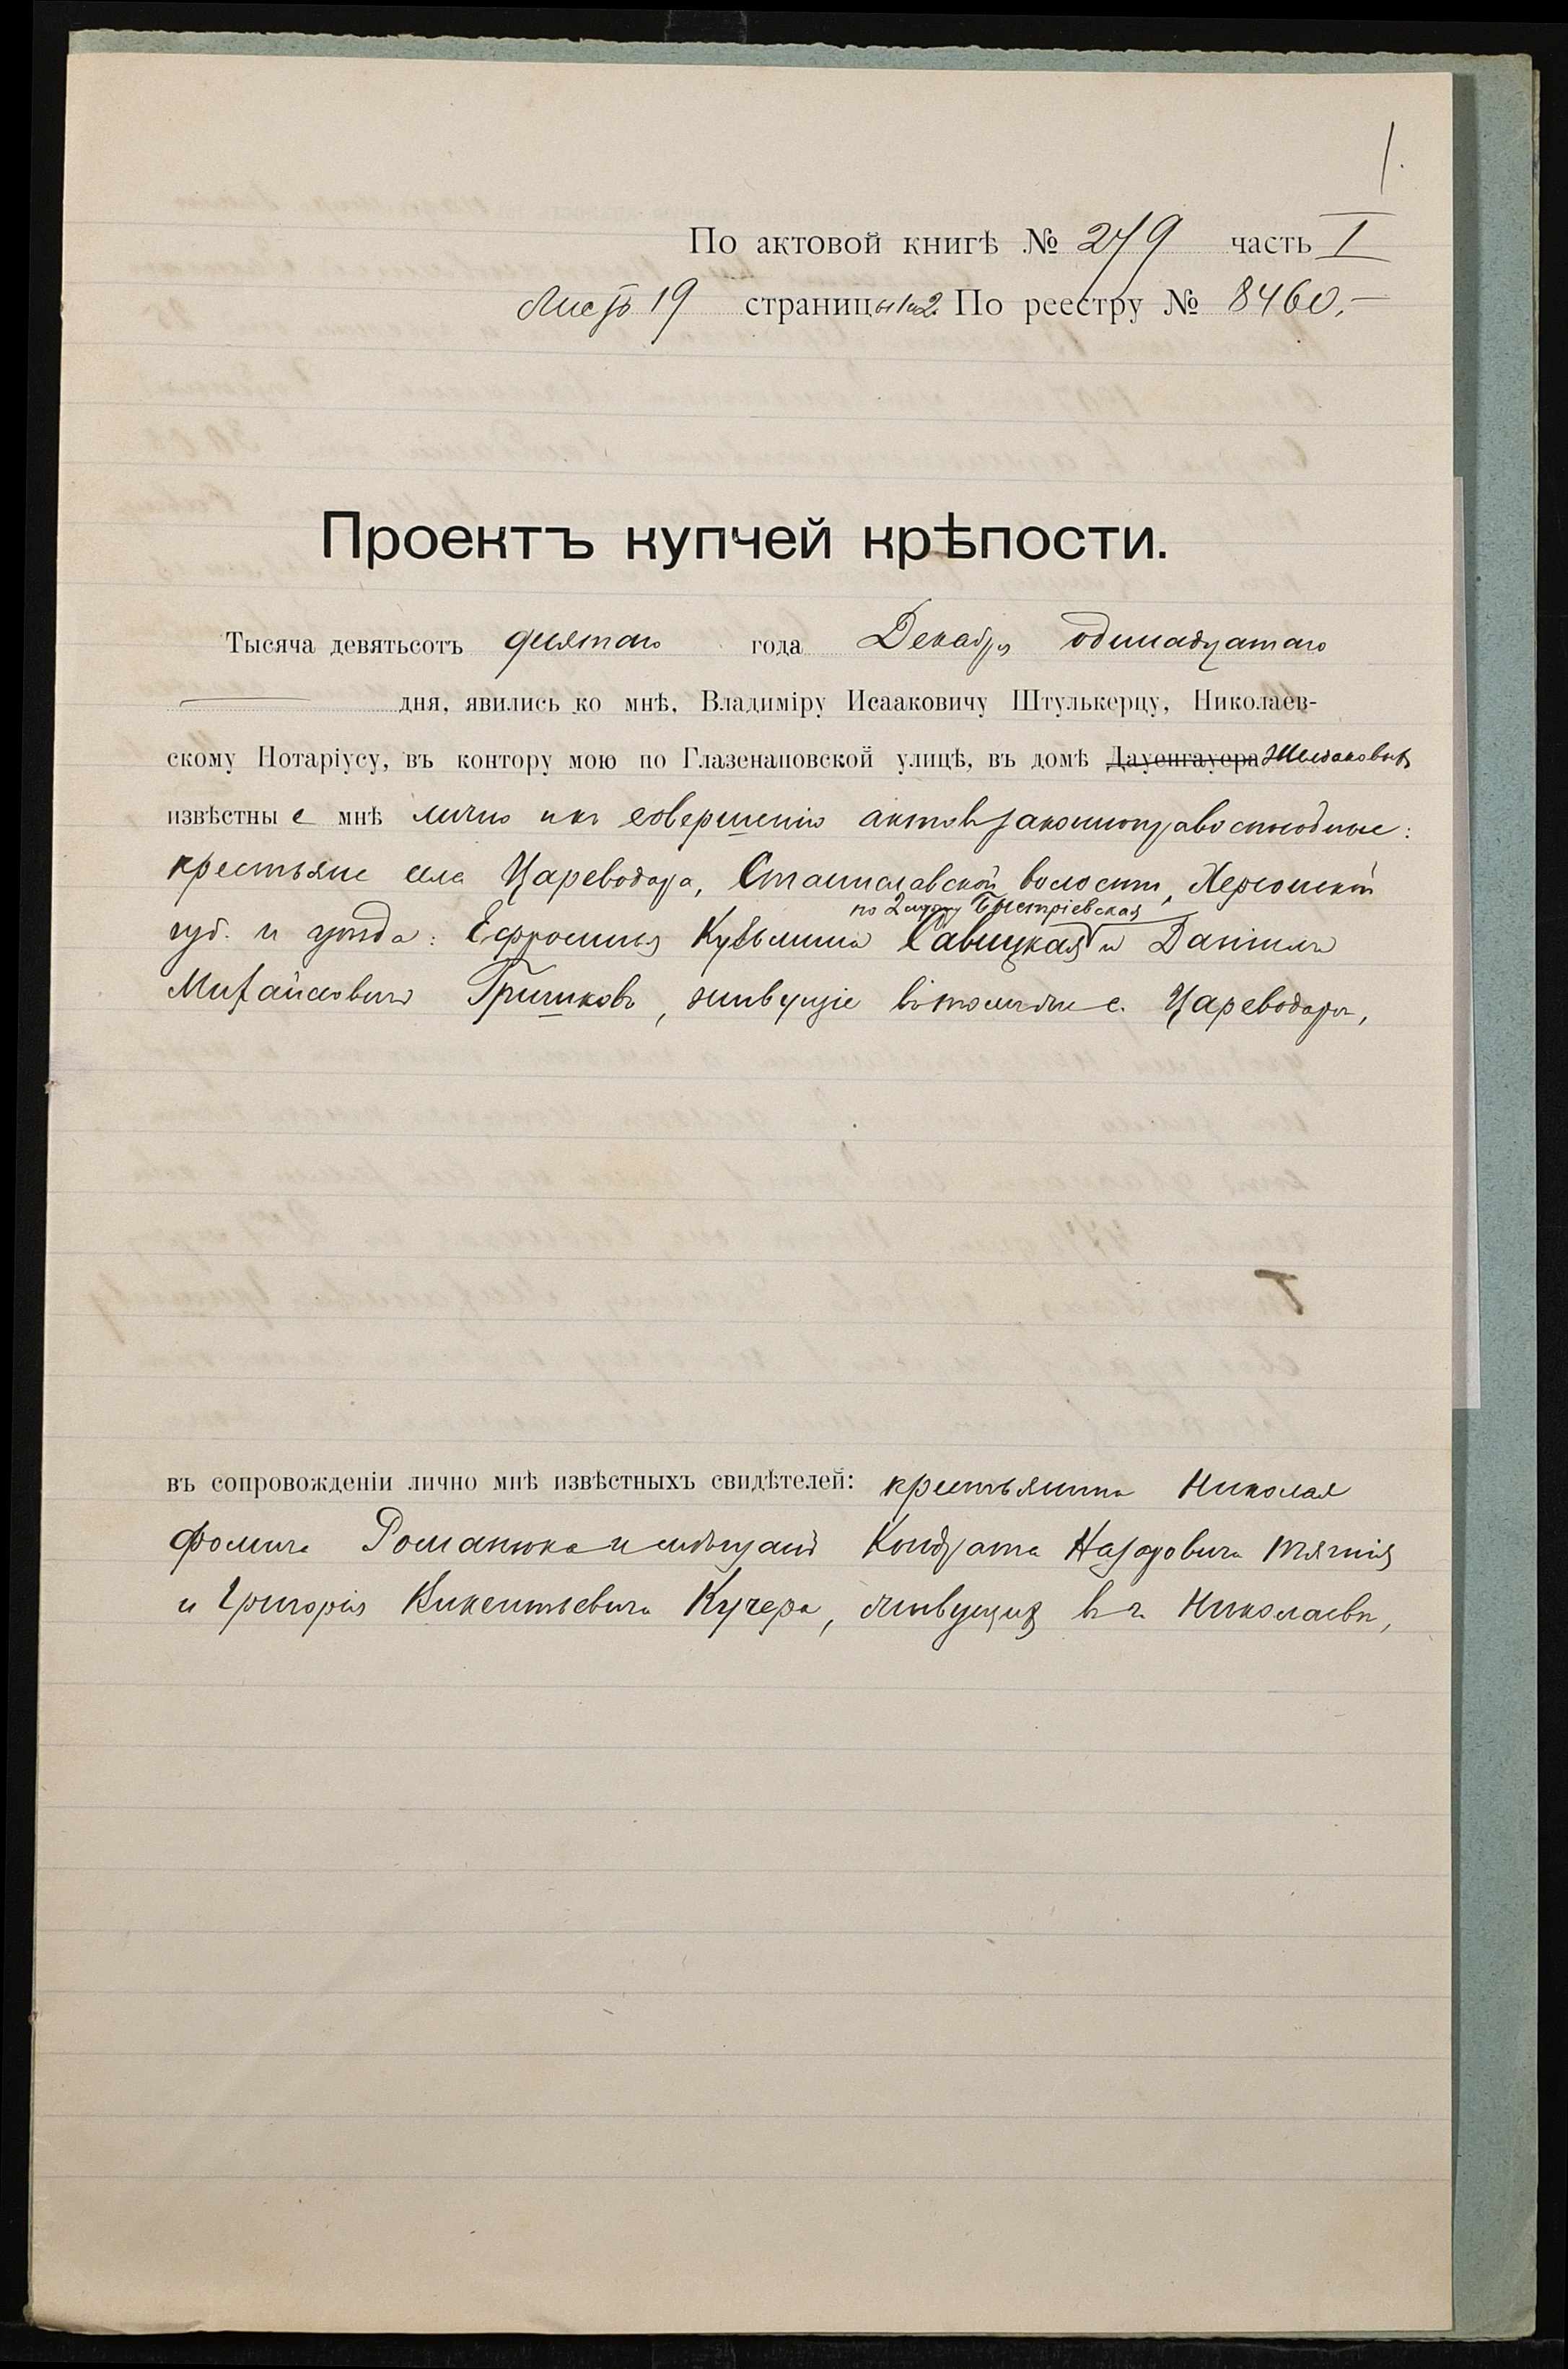 1.
По актовой книгѣ № 279 часть I
Листъ 19 страницы 1 и 2. По реестру № 8460.—
Проектъ купчей крѣпости.
Тысяча девятьсотъ девятаго года Декабря одинадцатаго
дня, явились ко мнѣ, Владиміру Исааковичу Штулькерцу, Николаев-
скому Нотаріусу, въ контору мою по Глазенаповской улицѣ, въ домѣ Дауенгауера
извѣстные мнѣ лично и къ совершенію актовъ законноправоспособные:
крестьяне села Цареводара, Станиславской волости, Херсонской
по 2 мужу
губ. и уѣзда: Ефросинья Кузьмина Савицкая и Даніилъ
Михайловичъ Гришковъ, живущіе въ томъ же с. Цареводаръ,
въ сопровожденіи лично мнѣ извѣстныхъ свидѣтелей: крестьянина Николая
Фомича Романюка и мѣщанъ Кондрата Назаровича
и Григорія Викентьевича Кучера, живущихъ въ г. Николаевѣ,